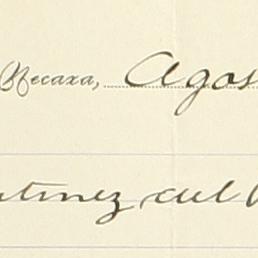 Necaxa, Agos
rtinez del